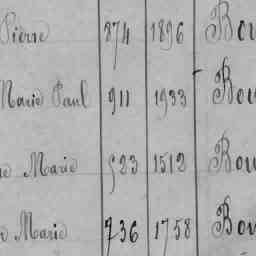 Pierre 874 1896 Bou
Marie Paul 911 1933 Bou
Marie 523 1512 Bou
Marie 736 1758 Bou